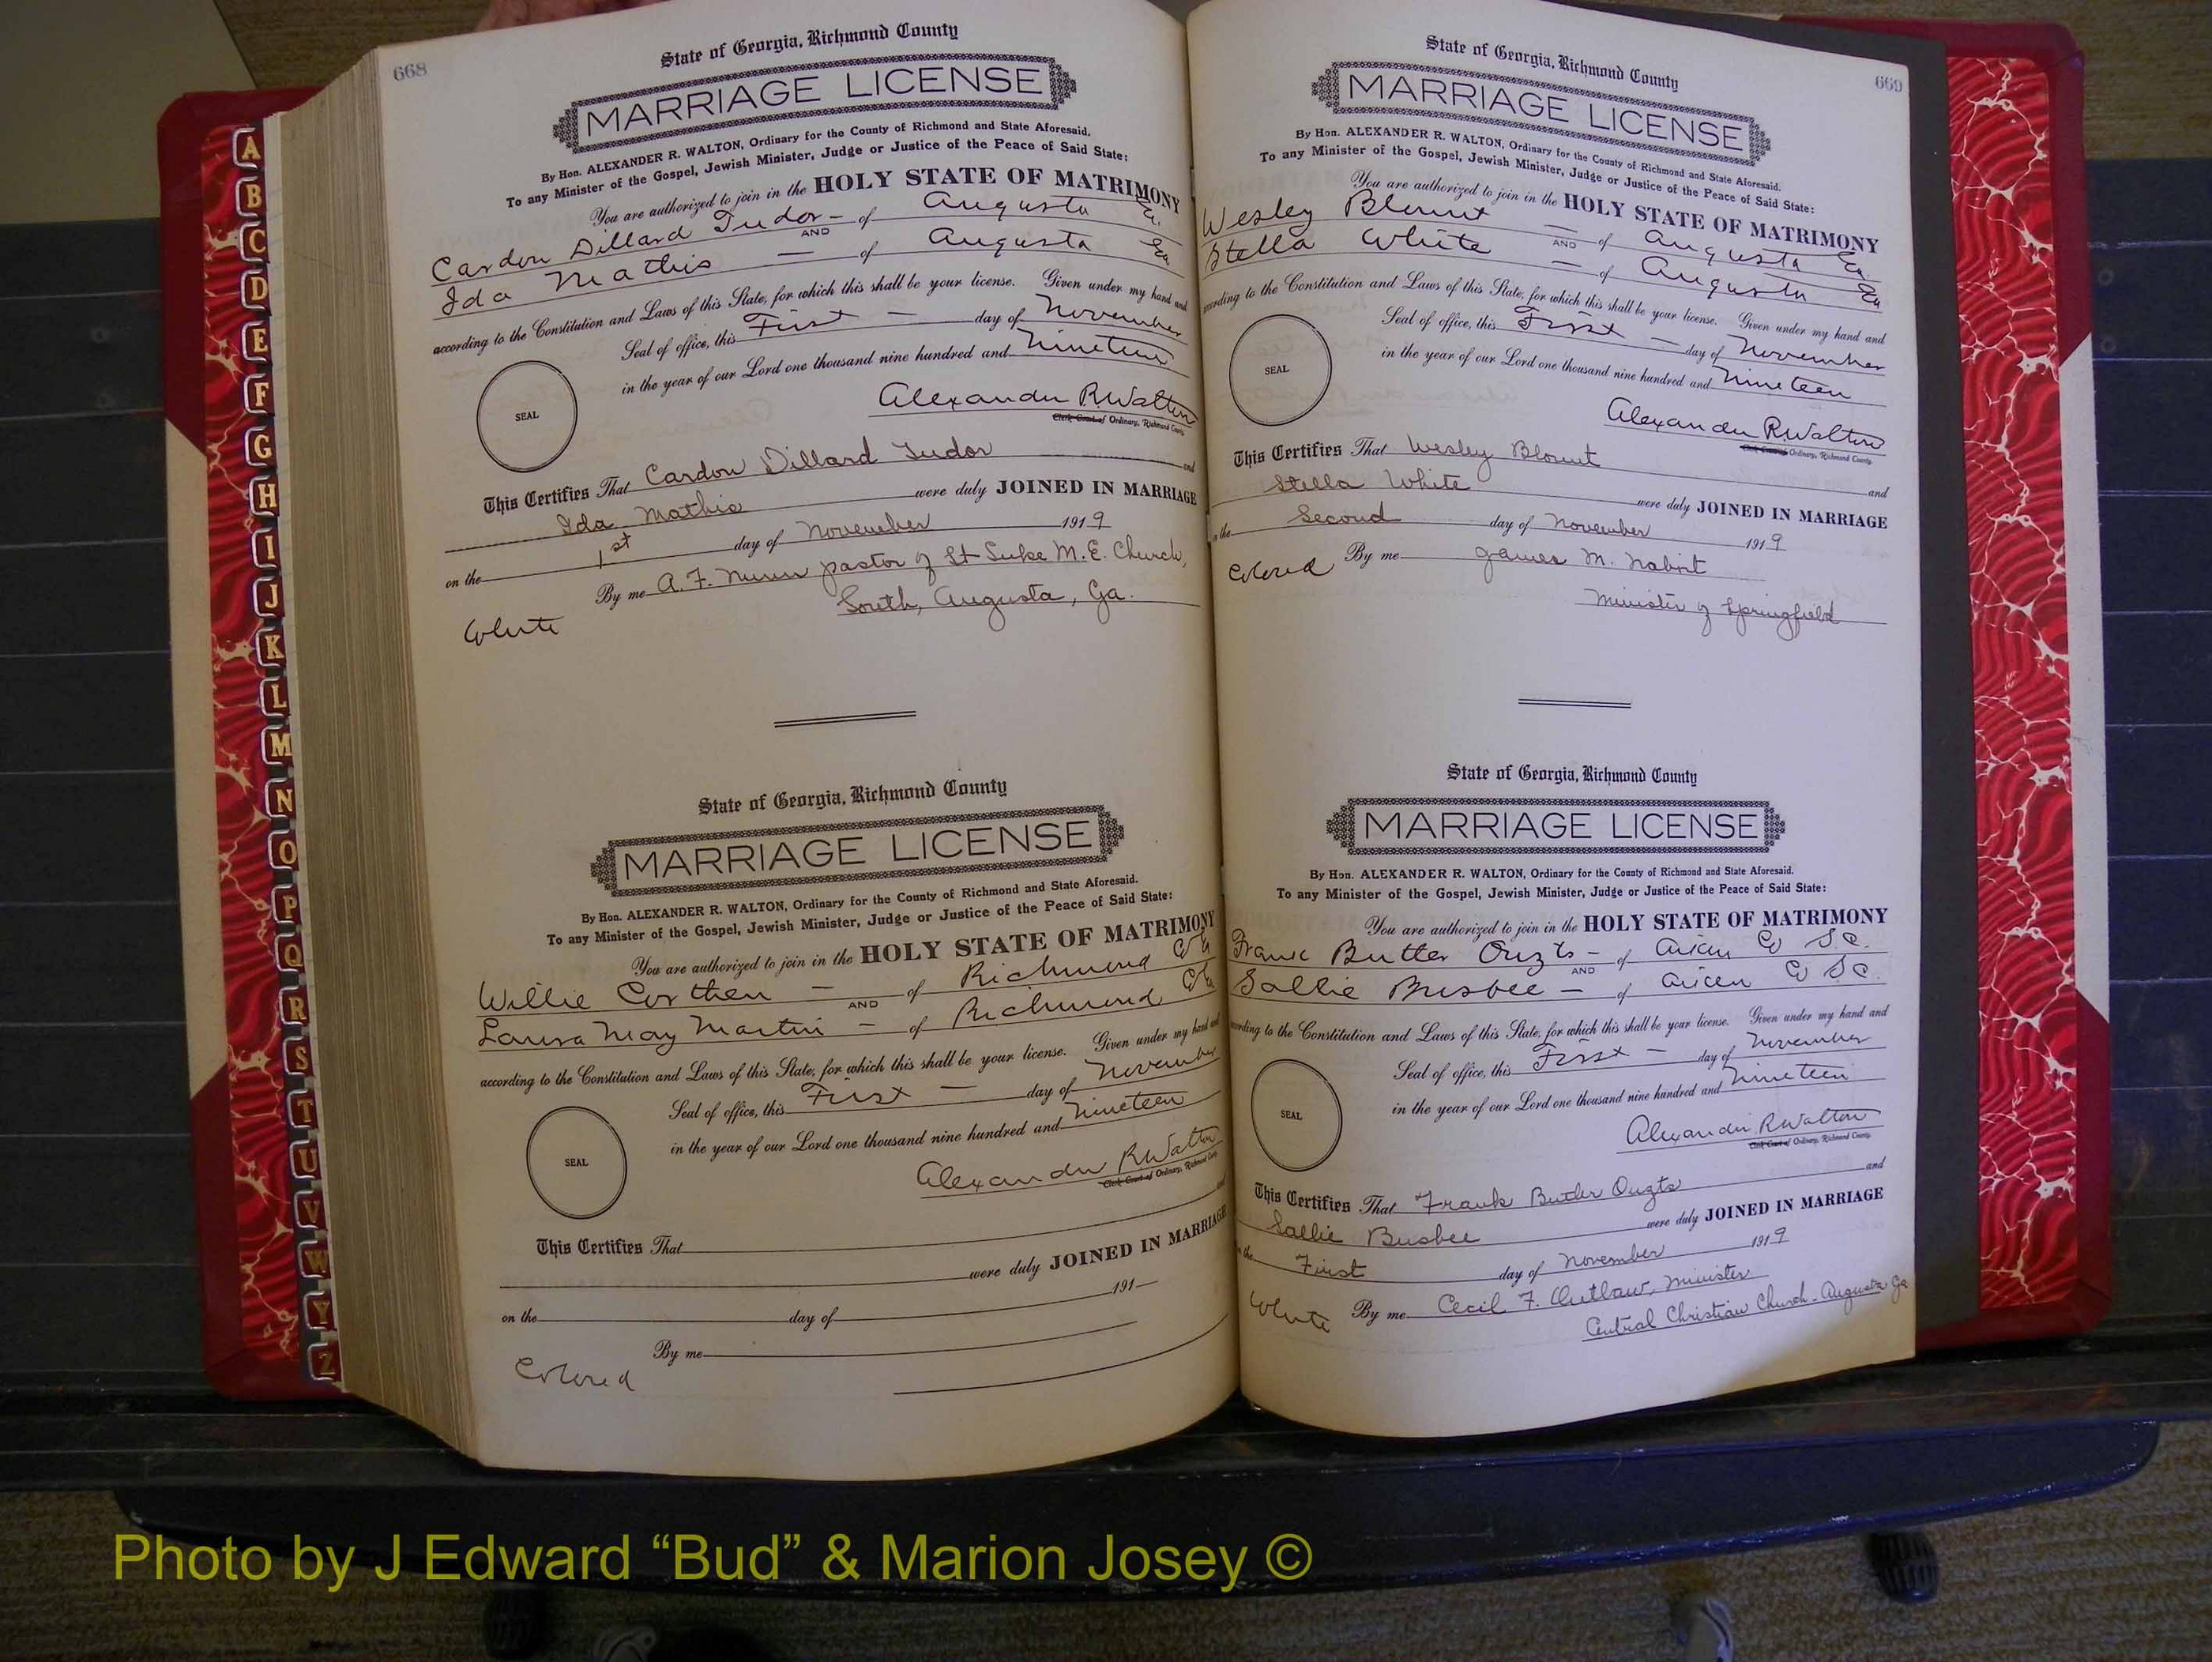 668
State of Georgia, Richmond County
MARRIAGE LICENSE
By Hon. ALEXANDER R. WALTON, Ordinary for the County of Richmond and State Aforesaid.
To any Minister of the Gospel, Jewish Minister, Judge or Justice of the Peace of Said State:
You are authorized to join in the HOLY STATE OF MATRIMONY
Cardon Dillard Tudor - of Augusta Ga.
AND
Ida Mathis — of Augusta Ga
according to the Constitution and Laws of this State, for which this shall be your license. Given under my hand and
Seal of office, this First — day of November
in the year of our Lord one thousand nine hundred and Nineteen
SEAL
Alexander R. Walton
Clerk Court of Ordinary, Richmond County.
This Certifies That Cardon Dillard Tudor and
Ida Mathis were duly JOINED IN MARRIAGE
on the 1st day of November 1919
By me A. F. Nunn pastor of St Luke M. E. Church,
South, Augusta, Ga.
White
State of Georgia, Richmond County
MARRIAGE LICENSE
By Hon. ALEXANDER R. WALTON, Ordinary for the County of Richmond and State Aforesaid.
To any Minister of the Gospel, Jewish Minister, Judge or Justice of the Peace of Said State:
You are authorized to join in the HOLY STATE OF MATRIMONY
Willie Corthen — of Richmond Co Ga
AND
Laura May Martin — of Richmond Co Ga
according to the Constitution and Laws of this State, for which this shall be your license. Given under my hand and
Seal of office, this First — day of November
in the year of our Lord one thousand nine hundred and Nineteen
SEAL
Alexander R Walton
Clerk Court of Ordinary, Richmond County.
This Certifies That and
were duly JOINED IN MARRIAGE
on the day of 191
By me
Colored
669
State of Georgia, Richmond County
MARRIAGE LICENSE
By Hon. ALEXANDER R. WALTON, Ordinary for the County of Richmond and State Aforesaid.
To any Minister of the Gospel, Jewish Minister, Judge or Justice of the Peace of Said State:
You are authorized to join in the HOLY STATE OF MATRIMONY
Wesley Blount — of Augusta Ga
AND
Stella White — of Augusta Ga
according to the Constitution and Laws of this State, for which this shall be your license. Given under my hand and
Seal of office, this First — day of November
in the year of our Lord one thousand nine hundred and Nineteen
SEAL
Alexander R. Walton
Clerk Court of Ordinary, Richmond County.
This Certifies That Wesley Blount and
Stella White were duly JOINED IN MARRIAGE
on the Second day of November 1919
Colored By me James M. Nabrit
Minister of Springfield
State of Georgia, Richmond County
MARRIAGE LICENSE
By Hon. ALEXANDER R. WALTON, Ordinary for the County of Richmond and State Aforesaid.
To any Minister of the Gospel, Jewish Minister, Judge or Justice of the Peace of Said State:
You are authorized to join in the HOLY STATE OF MATRIMONY
Frank Butler Ouzts — of Aiken Co S.C.
AND
Sallie Busbee — of Aiken Co S.C.
according to the Constitution and Laws of this State, for which this shall be your license. Given under my hand and
Seal of office, this First — day of November
in the year of our Lord one thousand nine hundred and Nineteen
SEAL
Alexander R Walton
Clerk Court of Ordinary, Richmond County.
This Certifies That Frank Butler Ouzts and
Sallie Busbee were duly JOINED IN MARRIAGE
on the First day of November 1919
White By me Cecil F. Outlaw, Minister
Central Christian Church - Augusta Ga
A
B
C
D
E
F
G
H
I
J
K
L
M
N
O
P
Q
R
S
T
U
V
W
Y
Z
Photo by J Edward “Bud” & Marion Josey ©